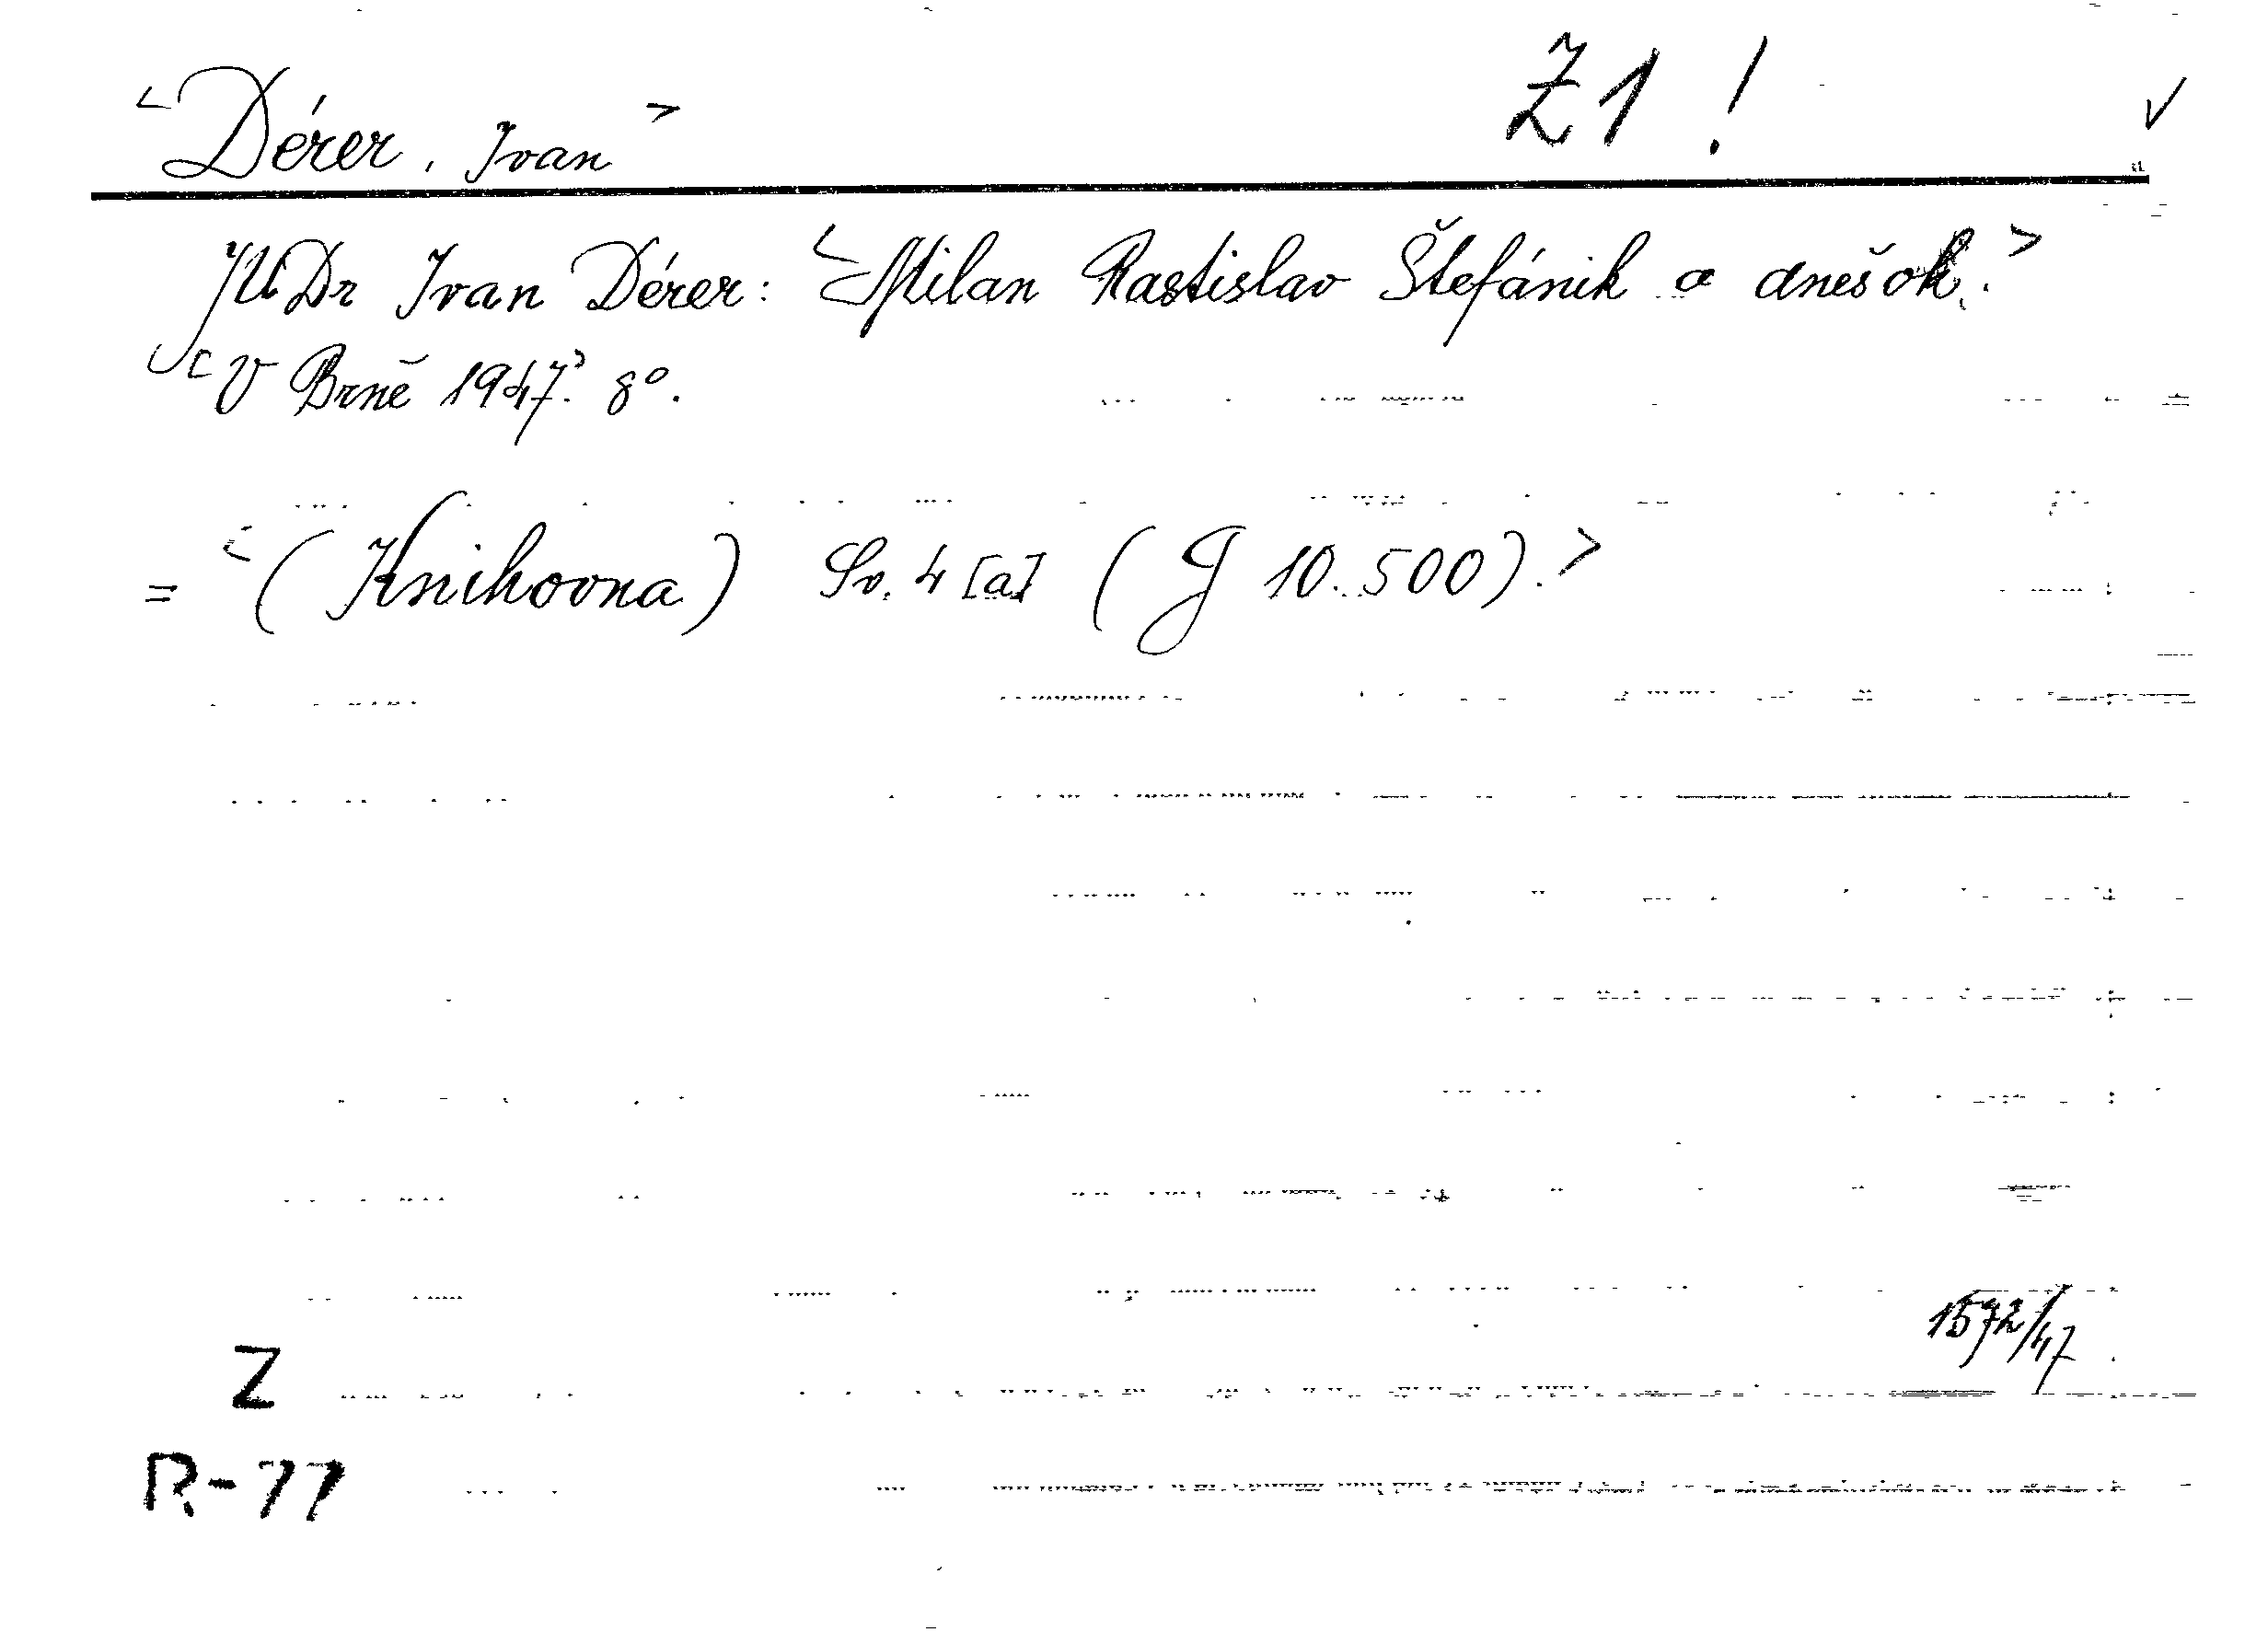 <Dérer, Ivan> Ž1! √
JUDr Ivan Dérer: <Milan Rastislav Štefánik a dnešok.>
<V Brně 1947.> 8°.
= <(Knihovna) Sv. 4 [a] (G 10.500).>
1572/47
Z
R-77